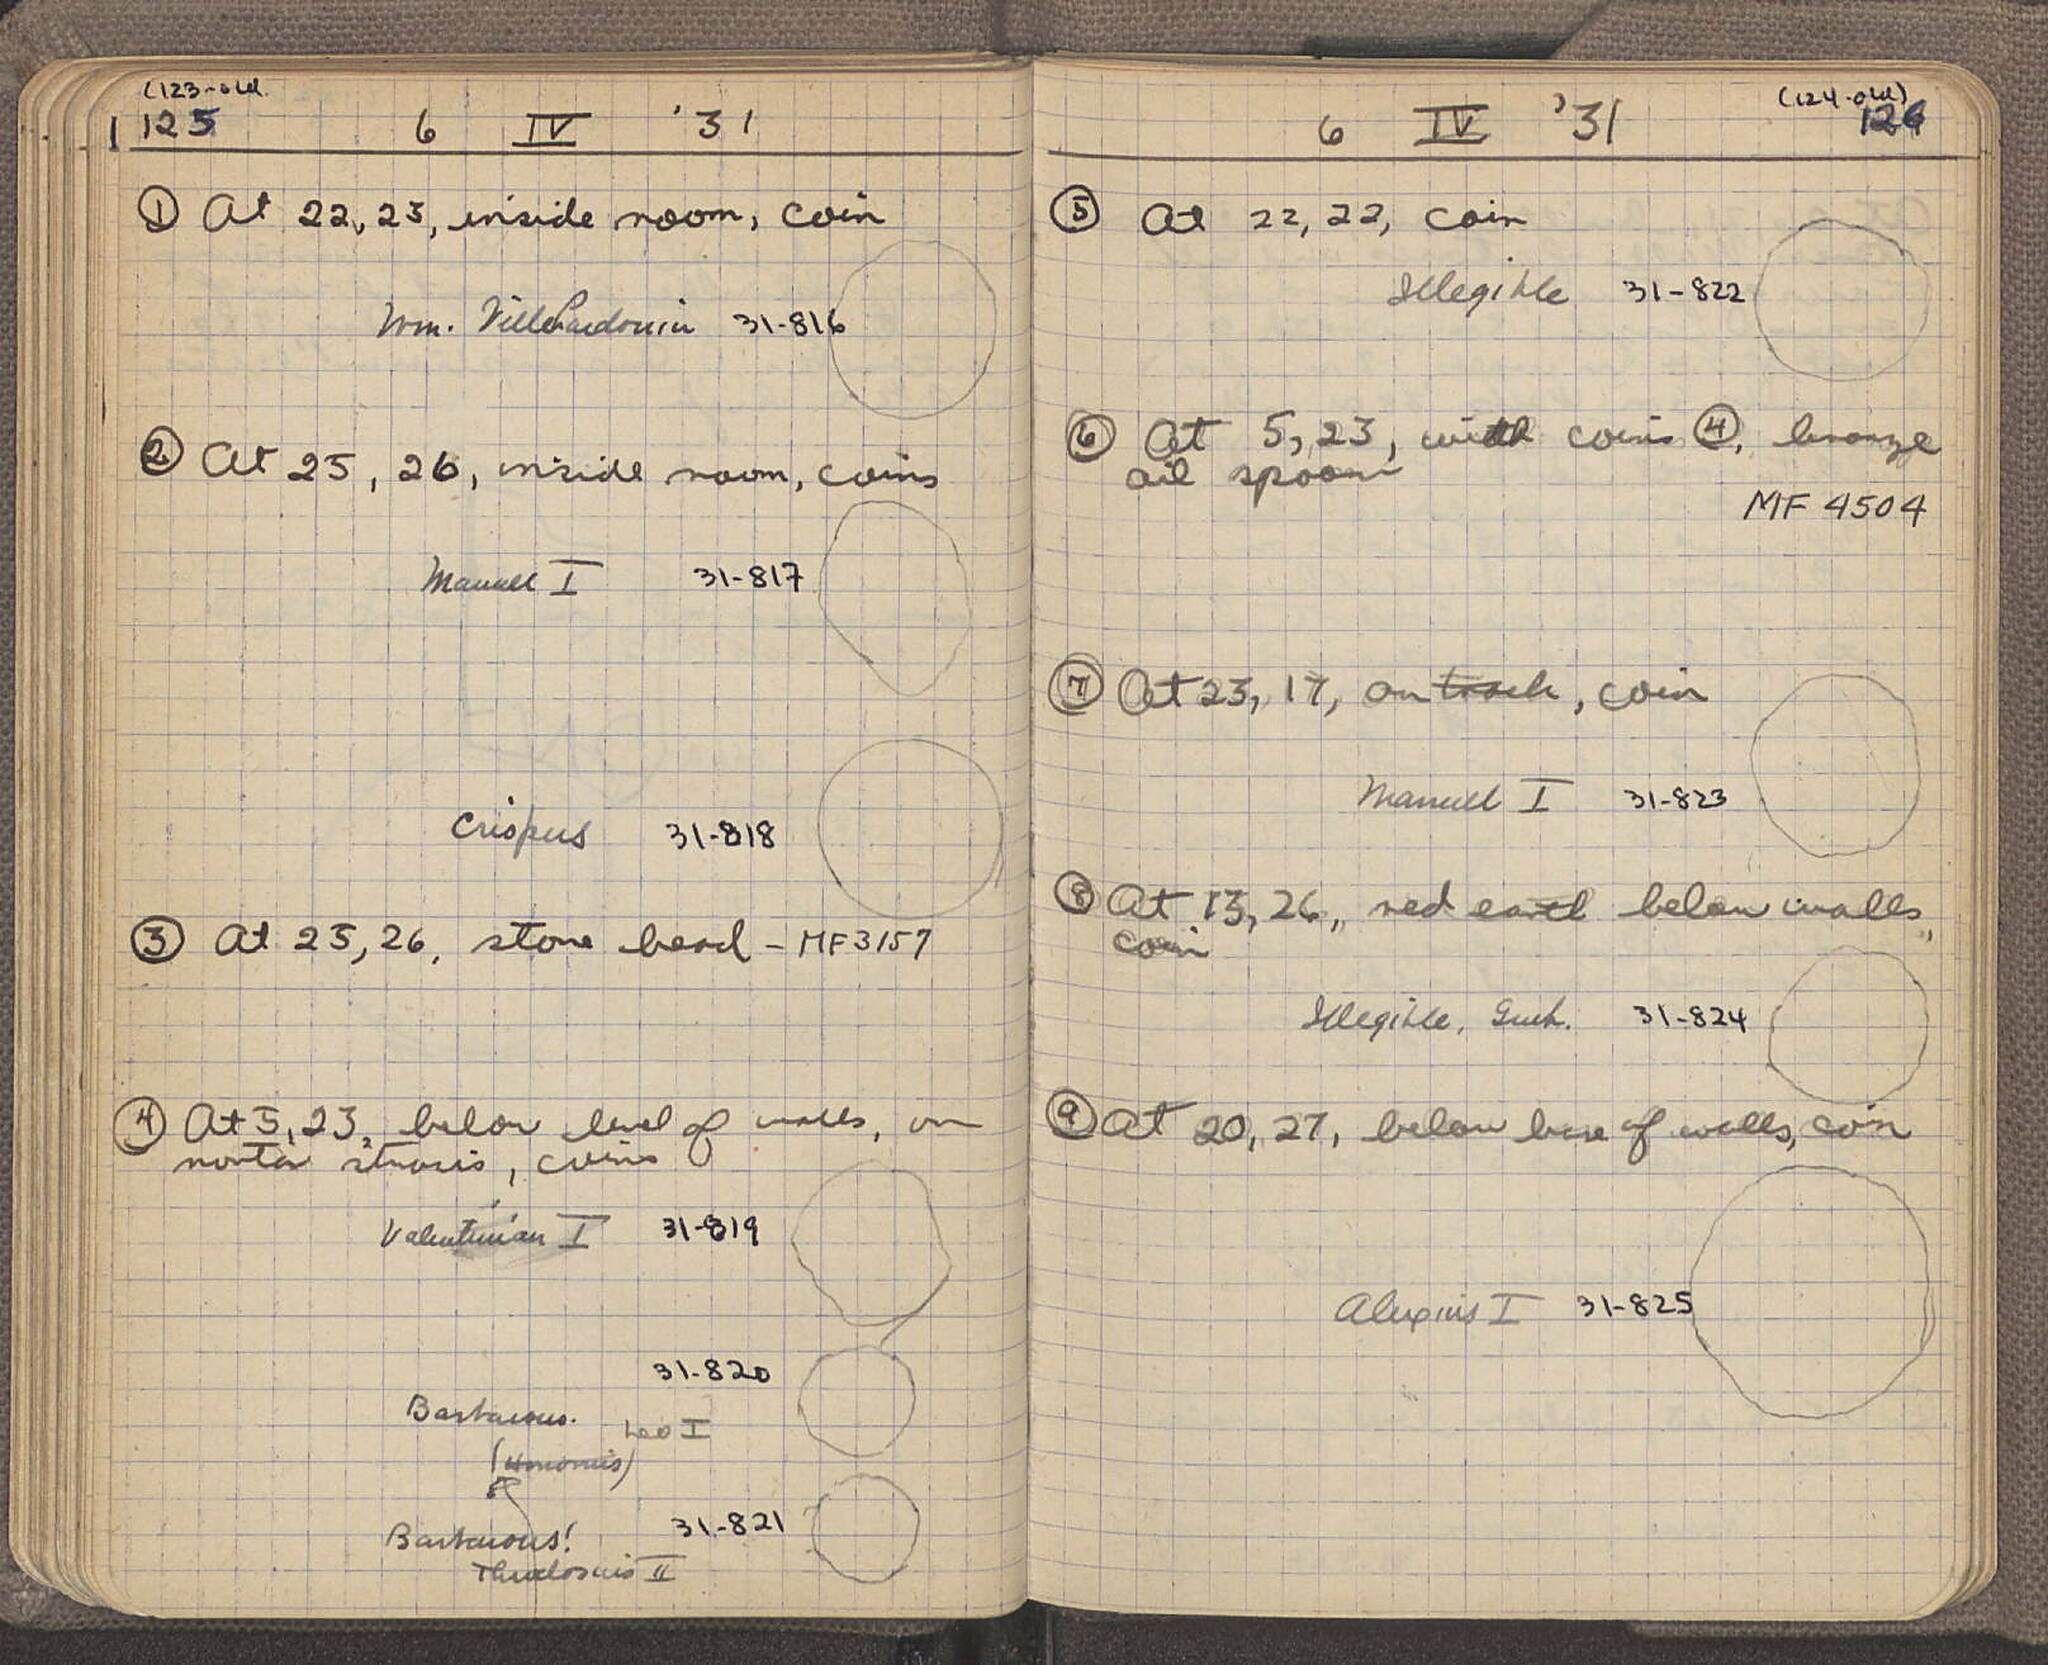 (123-old.
125
6 IV '31
① At 22, 23, inside room, coin
Wm. Villehardouin 31-816
② At 25, 26, inside room, coins
Manuel I 31-817
Crispus 31-818
③ At 25, 26, stone bead - MF3157
④ At 5, 23, below level of walls, in
mortar strosis, coins
Valentinian I 31-819
31-820
Barbarous.
Leo I
(Honorius)
Barbarous! 31-821
Theodosius II
(124-old)
126
6 IV '31
⑤ At 22, 22, coin
Illegible 31-822
⑥ At 5, 23, with coins ④, bronze
oil spoon
MF 4504
⑦ At 23, 17, on track, coin
Manuel I 31-823
⑧ At 13, 26, red earth below walls,
coin
Illegible, Greek. 31-824
⑨ At 20, 27, below base of walls, coin
Alexius I 31-825